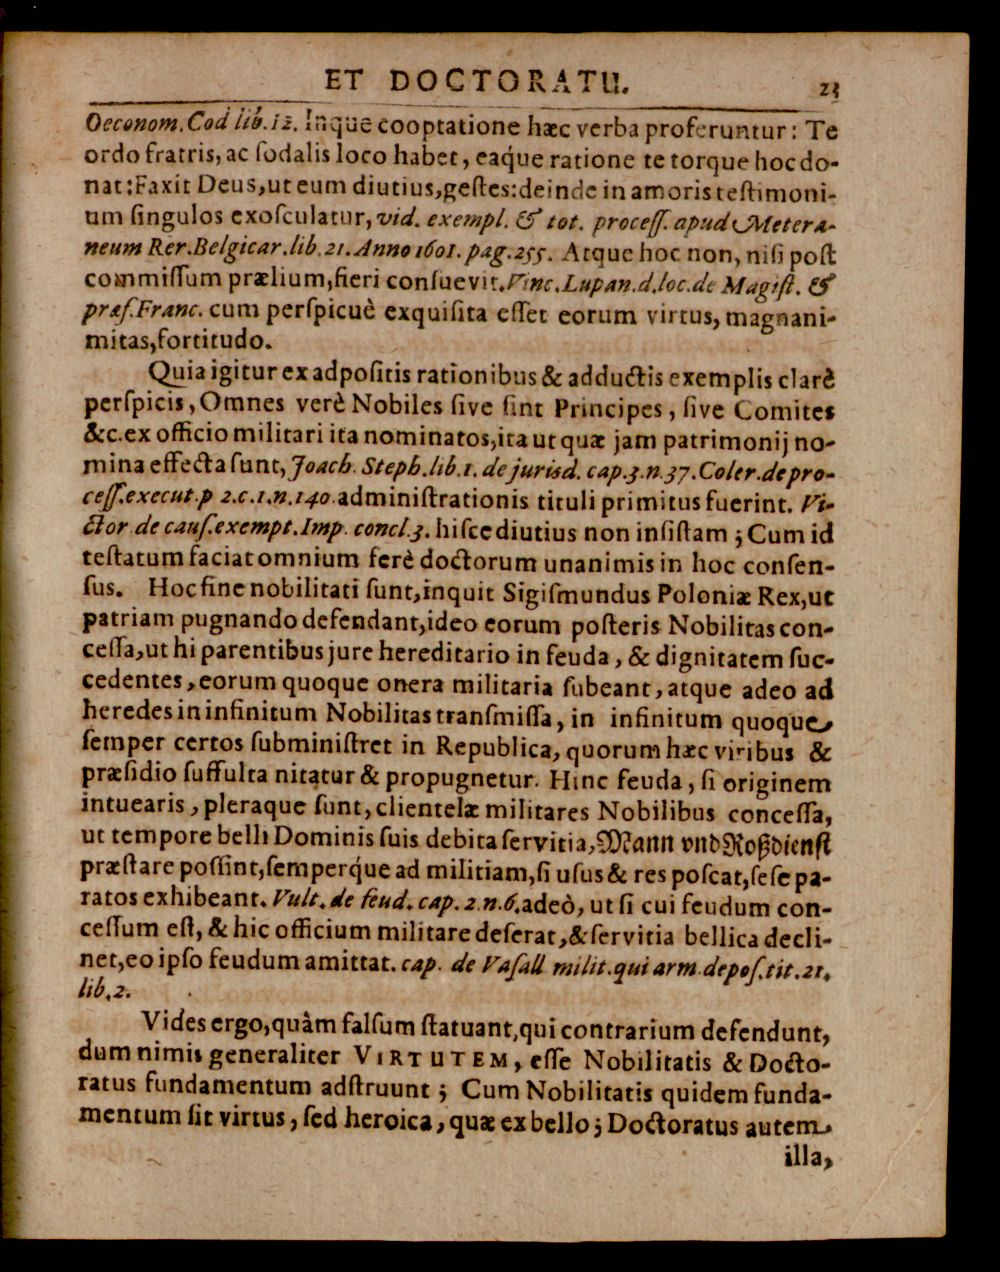 ET DOCTORATU. 23
Oeconom. Cod lib. 12. Inque cooptatione hæc verba proferuntur: Te
ordo fratris, ac ſodalis loco habet, eaq́ue ratione te torque hoc do-
nat: Faxit Deus, ut eum diutius, geſtes: deinde in amoris teſtimoni-
um ſingulos exoſculatur, vid. exempl. & tot. proceſſ. apud Metera-
neum Rer. Belgicar. lib. 21. Anno 1601. pag. 255. Atque hoc non, niſi poſt
commiſſum prælium, fieri conſuevit. Vinc. Lupan. d. loc. de Magiſt. &
præf. Franc. cum perſpicuè exquiſita eſſet eorum virtus, magnani-
mitas, fortitudo.
Quia igitur ex adpoſitis rationibus & adductis exemplis clarè
perſpicis, Omnes verè Nobiles ſive ſint Principes, ſive Comites
&c. ex officio militari ita nominatos, ita ut quæ jam patrimonij no-
mina effecta ſunt, Joach. Steph. lib. 1. de jurisd. cap. 3. n. 37. Coler. de pro-
ceſſ. execut. p 2. c. 1. n. 140. adminiſtrationis tituli primitus fuerint. Vi-
ctor de cauſ. exempt. Imp. concl. 3. hiſce diutius non inſiſtam; Cum id
teſtatum faciat omnium ferè doctorum unanimis in hoc conſen-
ſus. Hoc fine nobilitati ſunt, inquit Sigiſmundus Poloniæ Rex, ut
patriam pugnando defendant, ideo eorum poſteris Nobilitas con-
ceſſa, ut hi parentibus jure hereditario in feuda, & dignitatem ſuc-
cedentes, eorum quoque onera militaria ſubeant, atque adeo ad
heredes in infinitum Nobilitas tranſmiſſa, in infinitum quoque
ſemper certos ſubminiſtret in Republica, quorum hæc viribus &
præſidio ſuffulta nitatur & propugnetur. Hinc feuda, ſi originem
intuearis, pleraque ſunt, clientelæ militares Nobilibus conceſſa,
ut tempore belli Dominis ſuis debita ſervitia, Mann vnd Roßdienſt
præſtare poſſint, ſemperq́ue ad militiam, ſi uſus & res poſcat, ſeſe pa-
ratos exhibeant. Vult. de feud. cap. 2. n. 6. adeò, ut ſi cui feudum con-
ceſſum eſt, & hic officium militare deſerat, & ſervitia bellica decli-
net, eo ipſo feudum amittat. cap. de Vaſall milit. qui arm. depoſ. tit. 21.
lib. 2.
Vides ergo, quàm falſum ſtatuant, qui contrarium defendunt,
dum nimis generaliter VIRTUTEM, eſſe Nobilitatis & Docto-
ratus fundamentum adſtruunt; Cum Nobilitatis quidem funda-
mentum ſit virtus, ſed heroica, quæ ex bello; Doctoratus autem
illa,